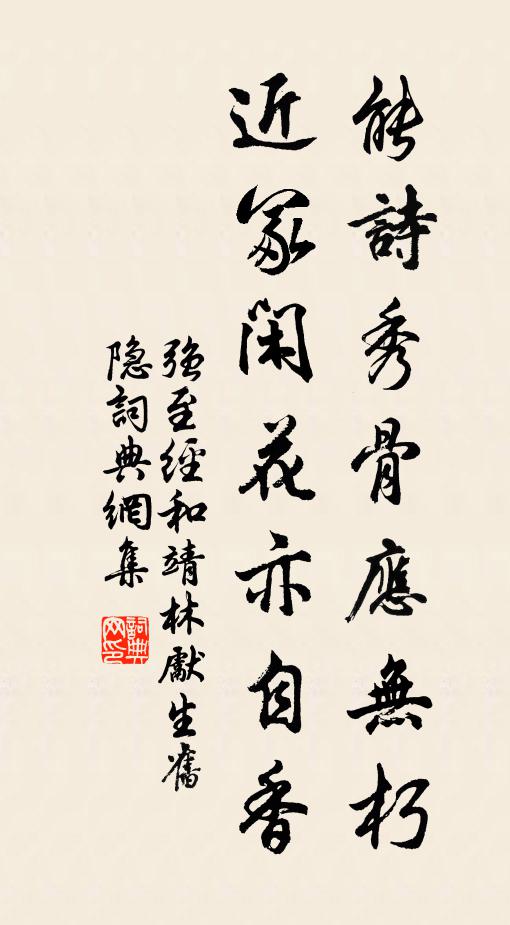 能詩秀骨應無朽
近冢閑花亦自香
強至經和靖林處生舊
隐詞典網集
詞典网印